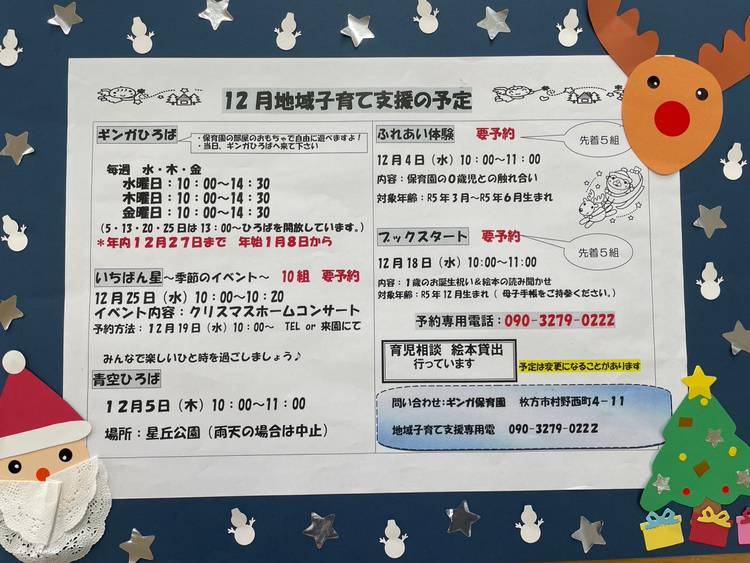 12月地域子育て支援の予定
ギンガひろば
・保育園の部屋のおもちゃで自由に遊べますよ！
・当日、ギンガひろばへ来て下さい
毎週　水・木・金
水曜日：10：00～14：30
木曜日：10：00～14：30
金曜日：10：00～14：30
（5・13・20・25日は13：00～ひろばを開放しています。）
＊年内12月27日まで　年始1月8日から
いちばん星～季節のイベント～　10組　要予約
12月25日（水）10：00～10：20
イベント内容：クリスマスホームコンサート
予約方法：12月19日（水）10：00～　TEL or 来園にて
みんなで楽しいひと時を過ごしましょう♪
青空ひろば
12月5日（木）10：00～11：00
場所：星丘公園（雨天の場合は中止）
ふれあい体験　要予約
先着5組
12月4日（水）10：00～11：00
内容：保育園の0歳児との触れ合い
対象年齢：R5年3月～R5年6月生まれ
ブックスタート　要予約
先着5組
12月18日（水）10:00～11:00
内容：1歳のお誕生祝い＆絵本の読み聞かせ
対象年齢：R5年12月生まれ（母子手帳をご持参ください。）
予約専用電話：090-3279-0222
育児相談　絵本貸出
行っています
予定は変更になることがあります
問い合わせ：ギンガ保育園　枚方市村野西町4－11
地域子育て支援専用電　090-3279-0222